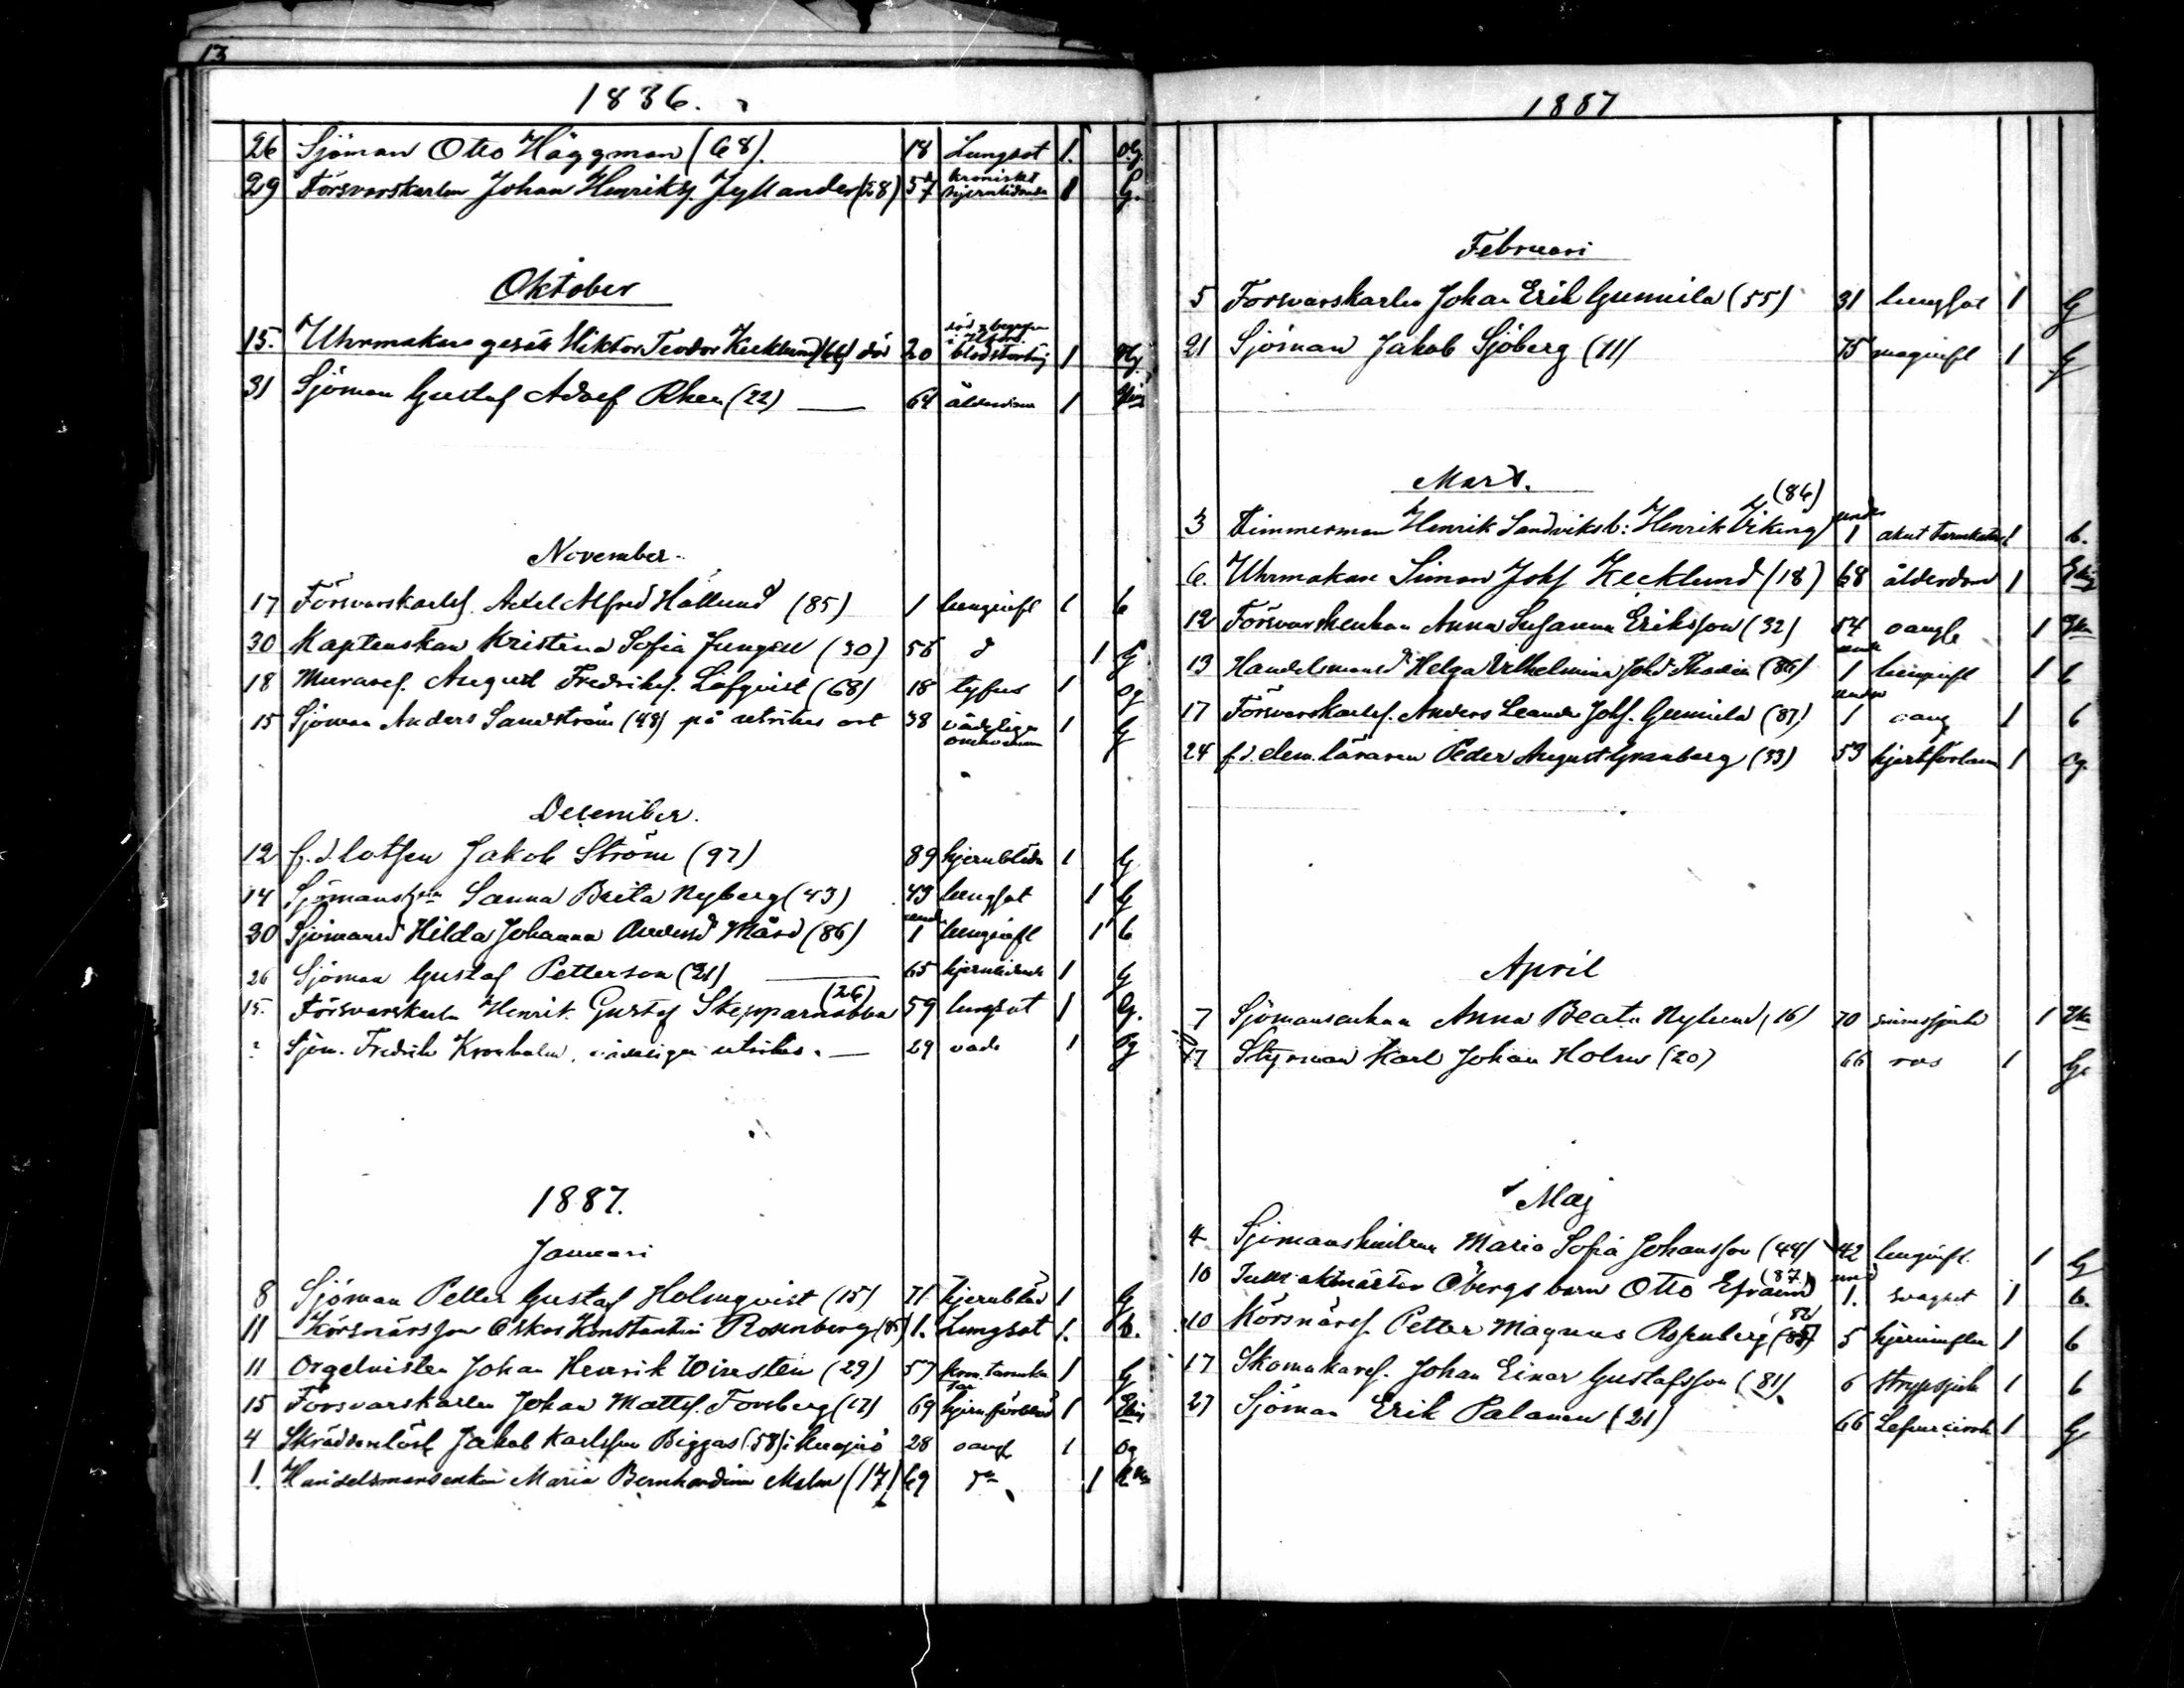 13
1836.
26 Sjöman Otto Häggman (68). 18 Lungsot 1. Og.
29 Försvarskarlen Johan Henriks. Jyllander (28) 57 kroniskt hjernlidande 1 G.
Oktober
15. Uhrmakare gesäll Viktor Teodor Kecklund (66) död 20 blodstörtning 1 Og.
31 Sjöman Gustaf Adolf Rhen (22) — 64 ålderdom 1
November.
17 Försvarskarls. Axel Alfred Hållund (85) 1 lunginfl 1 b
30 Kaptenskan Kristina Sofia Jungell (30) 56 d 1 G
18 Murares. August Fredriks. Löfqvist (68) 18 tyfus 1 Og
15 Sjöman Anders Sandström (48) på utrikes ort 38 vådeligen omkommen 1 G
December.
12 f.d. lotsen Jakob Ström (97) 89 hjernblödn 1 G
14 Sjömansh Sanna Brita Nyberg (43) 43 lungsot 1 G
30 Sjömansd Hilda Johanna Andersd Mård (86) und 1 lunginfl 1 b
26 Sjöman Gustaf Petterson (21) — 65 hjernlidande 1 G
15. Försvarskarlen Henrik Gustaf Skepparnabba (26) 59 lungsot 1 G.
? Sjöm. Fredrik Kronholm, vådeligen utrikes. — 29 våda 1 Og
1887.
Januari
8 Sjöman Petter Gustaf Holmqvist (15) 71 hjernblöd 1 G
11 Körsnärsson Oskar Konstantin Rosenberg (85) 1. Lungsot 1. b.
11 Orgelnisten Johan Henrik Wiresten (29) 57 kron. tarmka tar 1 G
15 Försvarskarlen Johan Matts. Forsberg (17) 69 hjernförblöd 1
4 Skräddarelärl Jakob Karlsson Biggas (58) i 28 oangf 1 Og
1. Handelsmansenkan Maria Bernhardina Malm (17) 69 da 1
1887
Februari
5 Försvarskarlen Johan Erik Gunnila (55) 31 lungsot 1 G
21 Sjöman Jakob Sjöberg (11) 75 maginfl 1 G
Mars.
3 Timmerman Henrik Sandviks b: Henrik Viking (86) under 1 akut tarmkatarr 1 b.
6. Uhrmakare Simon Johs Kecklund (18) 68 ålderdom 1
12 Försvarsenkan Anna Susanna Eriksson (32) 54 oangf 1
13 Handelsmansd Helga Vilhelmina Johsd Thodén (86) under 1 lunginfl 1 b
17 Försvarskarls. Anders Leander Johs. Gunnila (87) under 1 oang 1 b
24 f.d. elem. läraren Peder August Granberg (33) 53 hjertförlam 1 Og.
April
7 Sjömansenkan Anna Beata Nylund (16) 70 sinnessjuk 1
17 Styrman Karl Johan Holm (20) 66 ros 1 G.
Maj
4 Sjömanshustrun Maria Sofia Johansson (44) 42 lunginfl. 1 G
10 Tullvaktmäster Öbergs barn Otto Efraim (87) und 1. svaghet 1 b.
10 Körsnärs. Petter Magnus Rosenberg (82) 5 hjerninflam 1 b
17 Skomakares. Johan Einar Gustafsson (81) 6 strypsjuka 1 b
27 Sjöman Erik Palanen (21) 66 Lefvercirrh 1 G